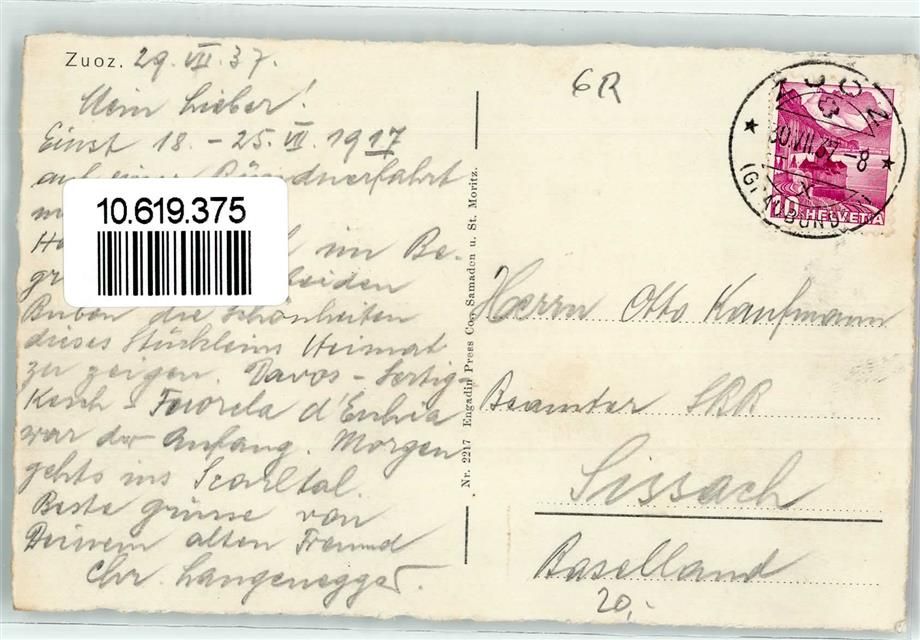 Zuoz. 29. VII. 37.
Mein Lieber!
Einst 18. - 25. VII. 1917
auf einer Bündnerfahrt
im Be-
beiden
Buben die Schönheiten
dieses Stückleins Heimat
zu zeigen. Davos - Sertig-
Kesch - Fuorcla d'Eschia
war der Anfang. Morgen
gehts ins Scarltal.
Beste Grüsse von
Deinem alten Freund
Chr. Langenegger.
10.619.375
Nr. 2217 Engadin Press Co., Samaden u. St. Moritz.
6R
ZUOZ
30.VII.37.-8
(GRAUBÜNDEN)
10 HELVETIA
Herrn Otto Kaufmann
Beamter SBB
Sissach
Baselland
20,-